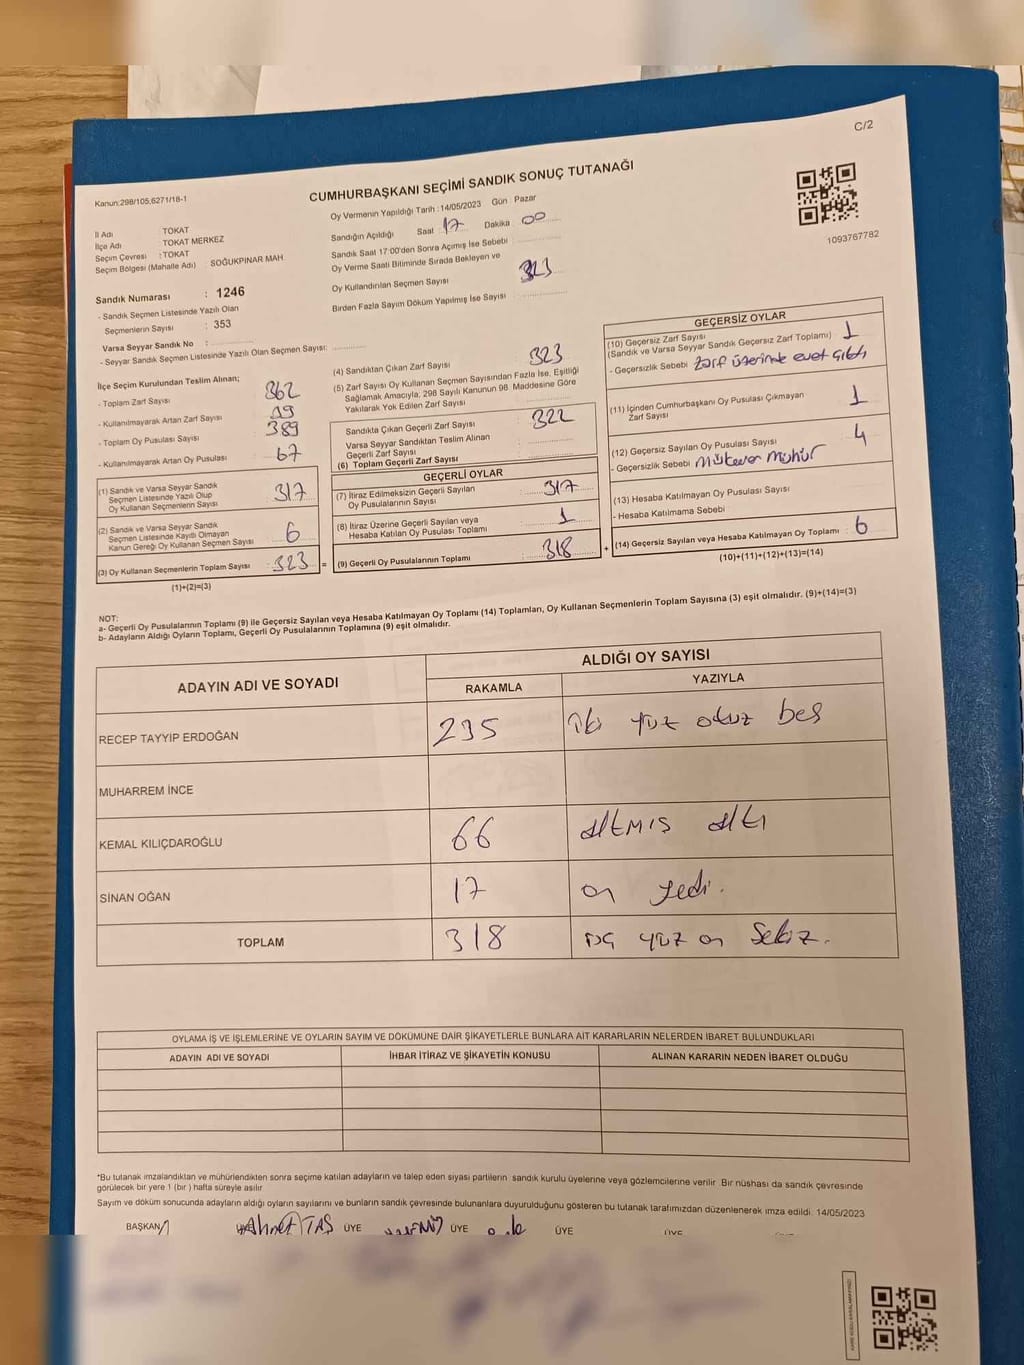 C/2
Kanun:298/105;6271/18-1
CUMHURBAŞKANI SEÇİMİ SANDIK SONUÇ TUTANAĞI
1093767782
İl Adı : TOKAT
İlçe Adı TOKAT MERKEZ
Seçim Çevresi : TOKAT
Seçim Bölgesi (Mahalle Adı) SOĞUKPINAR MAH
Sandık Numarası : 1246
- Sandık Seçmen Listesinde Yazılı Olan
Seçmenlerin Sayısı : 353
Varsa Seyyar Sandık No :
- Seyyar Sandık Seçmen Listesinde Yazılı Olan Seçmen Sayısı:
Oy Vermenin Yapıldığı Tarih :14/05/2023 Gün Pazar
Sandığın Açıldığı Saat 17 Dakika 00
Sandık Saat 17:00'den Sonra Açımış İse Sebebi
Oy Verme Saati Bitiminde Sırada Bekleyen ve
Oy Kullandırılan Seçmen Sayısı
Birden Fazla Sayım Döküm Yapılmış İse Sayısı
İlçe Seçim Kurulundan Teslim Alınan;
- Toplam Zarf Sayısı 362
- Kullanılmayarak Artan Zarf Sayısı 39
- Toplam Oy Pusulası Sayısı 389
- Kullanılmayarak Artan Oy Pusulası 67
(1) Sandık ve Varsa Seyyar Sandık
Seçmen Listesinde Yazılı Olup
Oy Kullanan Seçmenlerin Sayısı : 317
(2) Sandık ve Varsa Seyyar Sandık
Seçmen Listesinde Kayıtlı Olmayan
Kanun Gereği Oy Kullanan Seçmen Sayısı 6
(3) Oy Kullanan Seçmenlerin Toplam Sayısı : 323 =
(1)+(2)=(3)
(4) Sandıktan Çıkan Zarf Sayısı 323
(5) Zarf Sayısı Oy Kullanan Seçmen Sayısından Fazla İse, Eşitliği
Sağlamak Amacıyla, 298 Sayılı Kanunun 98. Maddesine Göre
Yakılarak Yok Edilen Zarf Sayısı
Sandıkta Çıkan Geçerli Zarf Sayısı 322
Varsa Seyyar Sandıktan Teslim Alınan
Geçerli Zarf Sayısı
(6) Toplam Geçerli Zarf Sayısı
GEÇERLİ OYLAR
(7) İtiraz Edilmeksizin Geçerli Sayılan
Oy Pusulalarının Sayısı : 317
(8) İtiraz Üzerine Geçerli Sayılan veya
Hesaba Katılan Oy Pusulası Toplamı 1
(9) Geçerli Oy Pusulalarının Toplamı : 318 +
GEÇERSİZ OYLAR
(10) Geçersiz Zarf Sayısı
(Sandık ve Varsa Seyyar Sandık Geçersiz Zarf Toplamı) 1
- Geçersizlik Sebebi Zarf üzerinde evet çıktı
(11) İçinden Cumhurbaşkanı Oy Pusulası Çıkmayan
Zarf Sayısı 1
(12) Geçersiz Sayılan Oy Pusulası Sayısı 4
- Geçersizlik Sebebi Mükerrer Mühür
(13) Hesaba Katılmayan Oy Pusulası Sayısı
- Hesaba Katılmama Sebebi
(14) Geçersiz Sayılan veya Hesaba Katılmayan Oy Toplamı : 6
(10)+(11)+(12)+(13)=(14)
NOT:
a- Geçerli Oy Pusulalarının Toplamı (9) ile Geçersiz Sayılan veya Hesaba Katılmayan Oy Toplamı (14) Toplamları, Oy Kullanan Seçmenlerin Toplam Sayısına (3) eşit olmalıdır. (9)+(14)=(3)
b- Adayların Aldığı Oyların Toplamı, Geçerli Oy Pusulalarının Toplamına (9) eşit olmalıdır.
ADAYIN ADI VE SOYADI ALDIĞI OY SAYISI
RAKAMLA YAZIYLA
RECEP TAYYIP ERDOĞAN 235 iki yüz otuz beş
MUHARREM İNCE
KEMAL KILIÇDAROĞLU 66 altmış altı
SİNAN OĞAN 17 on yedi.
TOPLAM 318 üç yüz on sekiz.
OYLAMA İŞ VE İŞLEMLERİNE VE OYLARIN SAYIM VE DÖKÜMÜNE DAİR ŞİKAYETLERLE BUNLARA AİT KARARLARIN NELERDEN İBARET BULUNDUKLARI
ADAYIN ADI VE SOYADI İHBAR İTİRAZ VE ŞİKAYETİN KONUSU ALINAN KARARIN NEDEN İBARET OLDUĞU
*Bu tutanak imzalandıktan ve mühürlendikten sonra seçime katılan adayların ve talep eden siyasi partilerin sandık kurulu üyelerine veya gözlemcilerine verilir. Bir nüshası da sandık çevresinde
görülecek bir yere 1 (bir ) hafta süreyle asılır
Sayım ve döküm sonucunda adayların aldığı oyların sayılarını ve bunların sandık çevresinde bulunanlara duyurulduğunu gösteren bu tutanak tarafımızdan düzenlenerek imza edildi. 14/05/2023
BAŞKAN Ahmet TAŞ ÜYE ÜYE ÜYE ÜYE